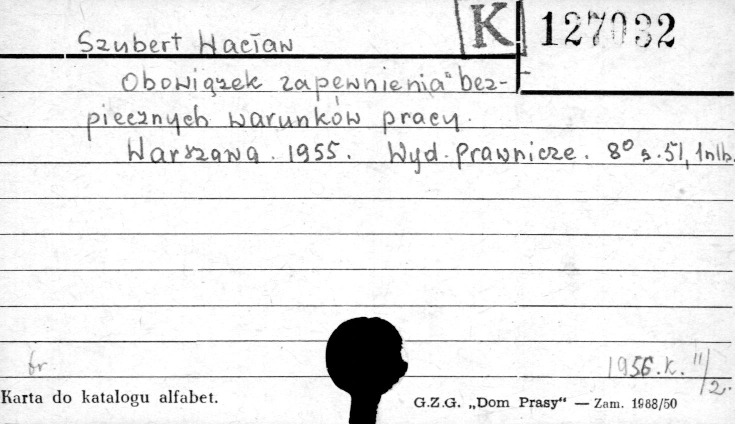 K 127032
Szubert Wacław
Obowiązek zapewnienia bez-
piecznych warunków pracy.
Warszawa. 1955. Wyd. Prawnicze. 8° s. 51, 1 nlb.
br
1956. K. 11/2.
Karta do katalogu alfabet.
G.Z.G. „Dom Prasy“ — Zam. 1988/50